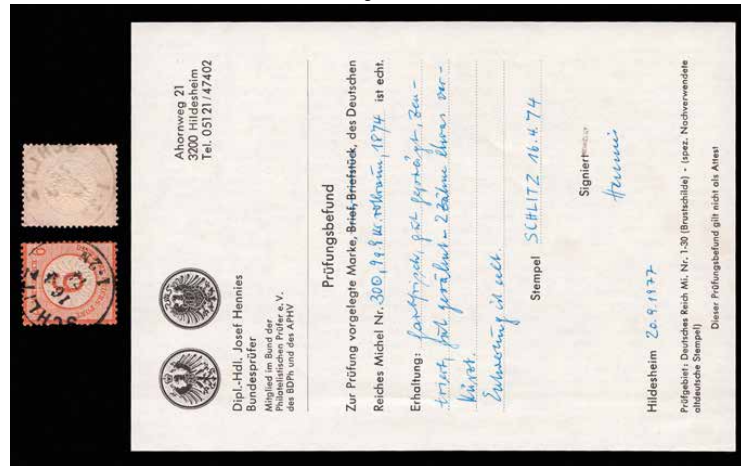 Ahornweg 21
3200 Hildesheim
Tel. 05121/47402
Dipl.-Hdl. Josef Hennies
Bundesprüfer
Mitglied im Bund der
Philatelistischen Prüfer e. V.
des BDPh und des APHV
Prüfungsbefund
Zur Prüfung vorgelegte Marke, Brief, Briefstück, des Deutschen
Reiches Michel Nr. 30 1874 ist echt.
Erhaltung: farbfrisch, gut geprägt, zen-
triert, gut gezähnt - 2 Zähne etwas ver-
kürzt.
Entwertung ist echt.
Stempel SCHLITZ 16.4.74
Signiert HENNIES
Hennies
Hildesheim 20.9.1977
Prüfgebiet: Deutsches Reich Mi. Nr. 1-30 (Brustschilde) - (spez. Nachverwendete
altdeutsche Stempel)
Dieser Prüfungsbefund gilt nicht als Attest
SCHLITZ
16